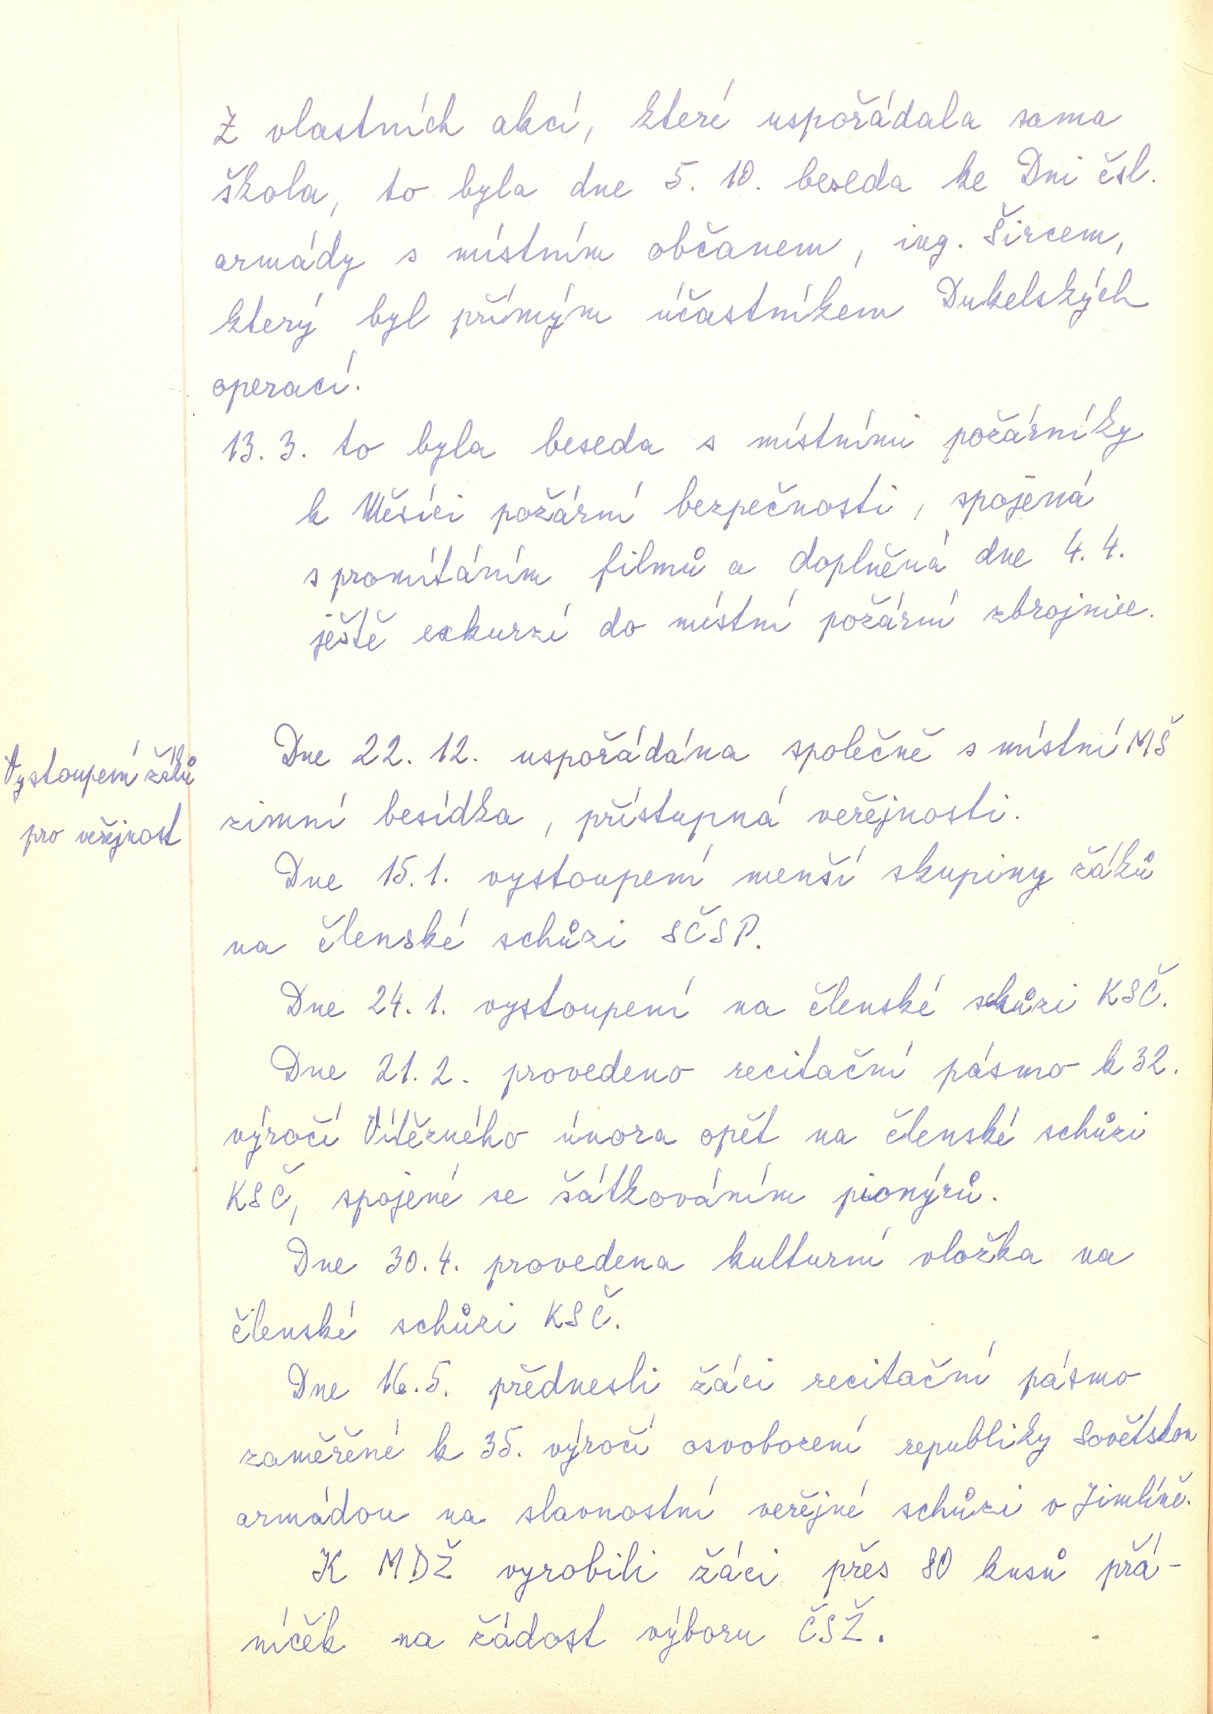 Z vlastních akcí, které uspořádala sama
škola, to byla dne 5. 10. beseda ke Dni čsl.
armády s místním občanem, ing. Šircem,
který byl přímým účastníkem Dukelských
operací.
13. 3. to byla beseda s místními požárníky
k Měsíci požární bezpečnosti, spojená
s promítáním filmů a doplněná dne 4. 4.
ještě exkurzí do místní požární zbrojnice.
Vystoupení žáků
pro veřejnost
Dne 22. 12. uspořádána společně s místní MŠ
zimní besídka, přístupná veřejnosti.
Dne 15. 1. vystoupení menší skupiny žáků
na členské schůzi SČSP.
Dne 24. 1. vystoupení na členské schůzi KSČ.
Dne 21. 2. provedeno recitační pásmo k 32.
výročí Vítězného února opět na členské schůzi
KSČ, spojené se šátkováním pionýrů.
Dne 30. 4. provedena kulturní vložka na
členské schůzi KSČ.
Dne 16. 5. přednesli žáci recitační pásmo
zaměřené k 35. výročí osvobození republiky Sovětskou
armádou na slavnostní veřejné schůzi v Jimlíně.
K MDŽ vyrobili žáci přes 80 kusů přá-
níček na žádost výboru ČSŽ.